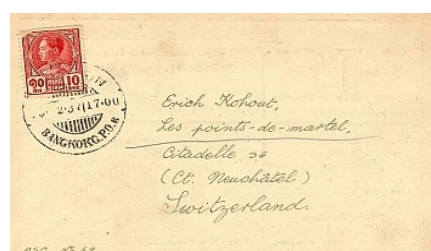 ๑๐ 10
2·37 17·00
BANGKOK G.P.O.
Erich Kohout,
Les points-de-martel,
Citadelle 36
(Ct. Neuchâtel)
Switzerland.